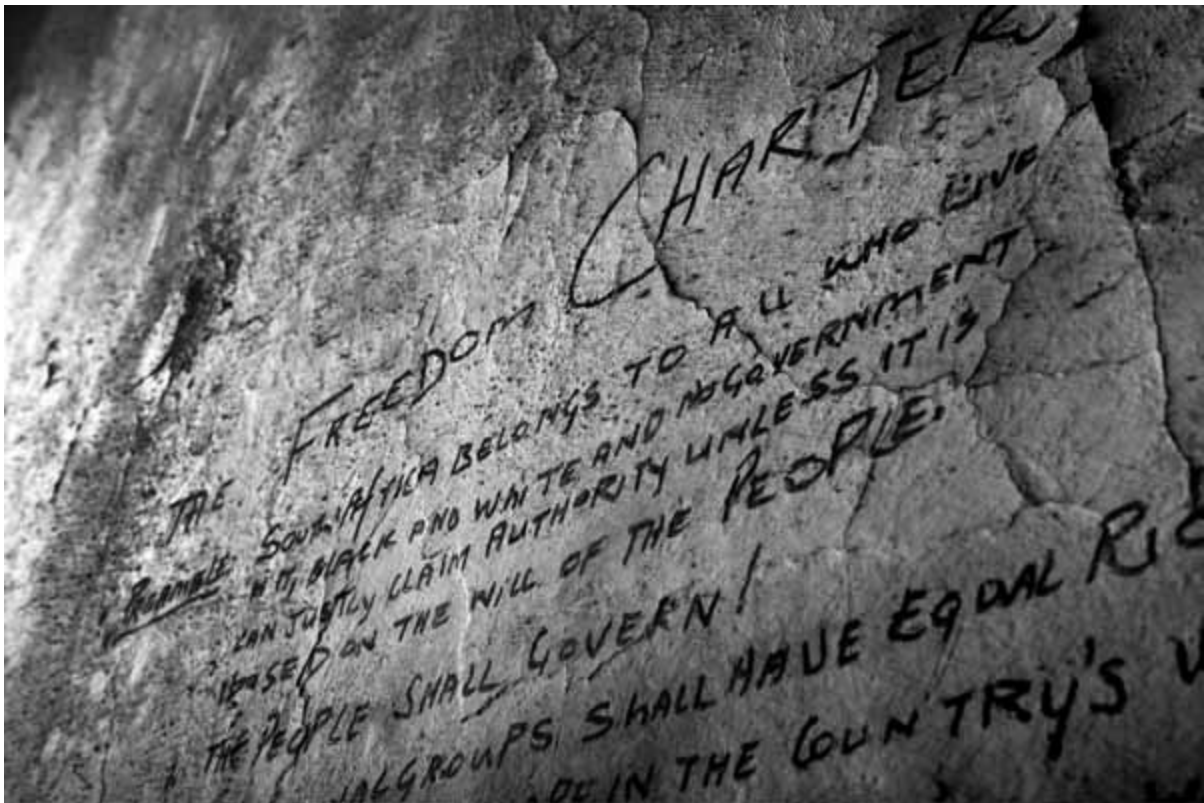 THE FREEDOM CHARTER
PREAMBLE SOUTH AFRICA BELONGS TO ALL WHO LIVE
IN IT, BLACK AND WHITE AND NO GOVERNMENT
CAN JUSTLY CLAIM AUTHORITY UNLESS IT IS
BASED ON THE WILL OF THE PEOPLE.
THE PEOPLE SHALL GOVERN!
GROUPS SHALL HAVE EQUAL
IN THE COUNTRY'S